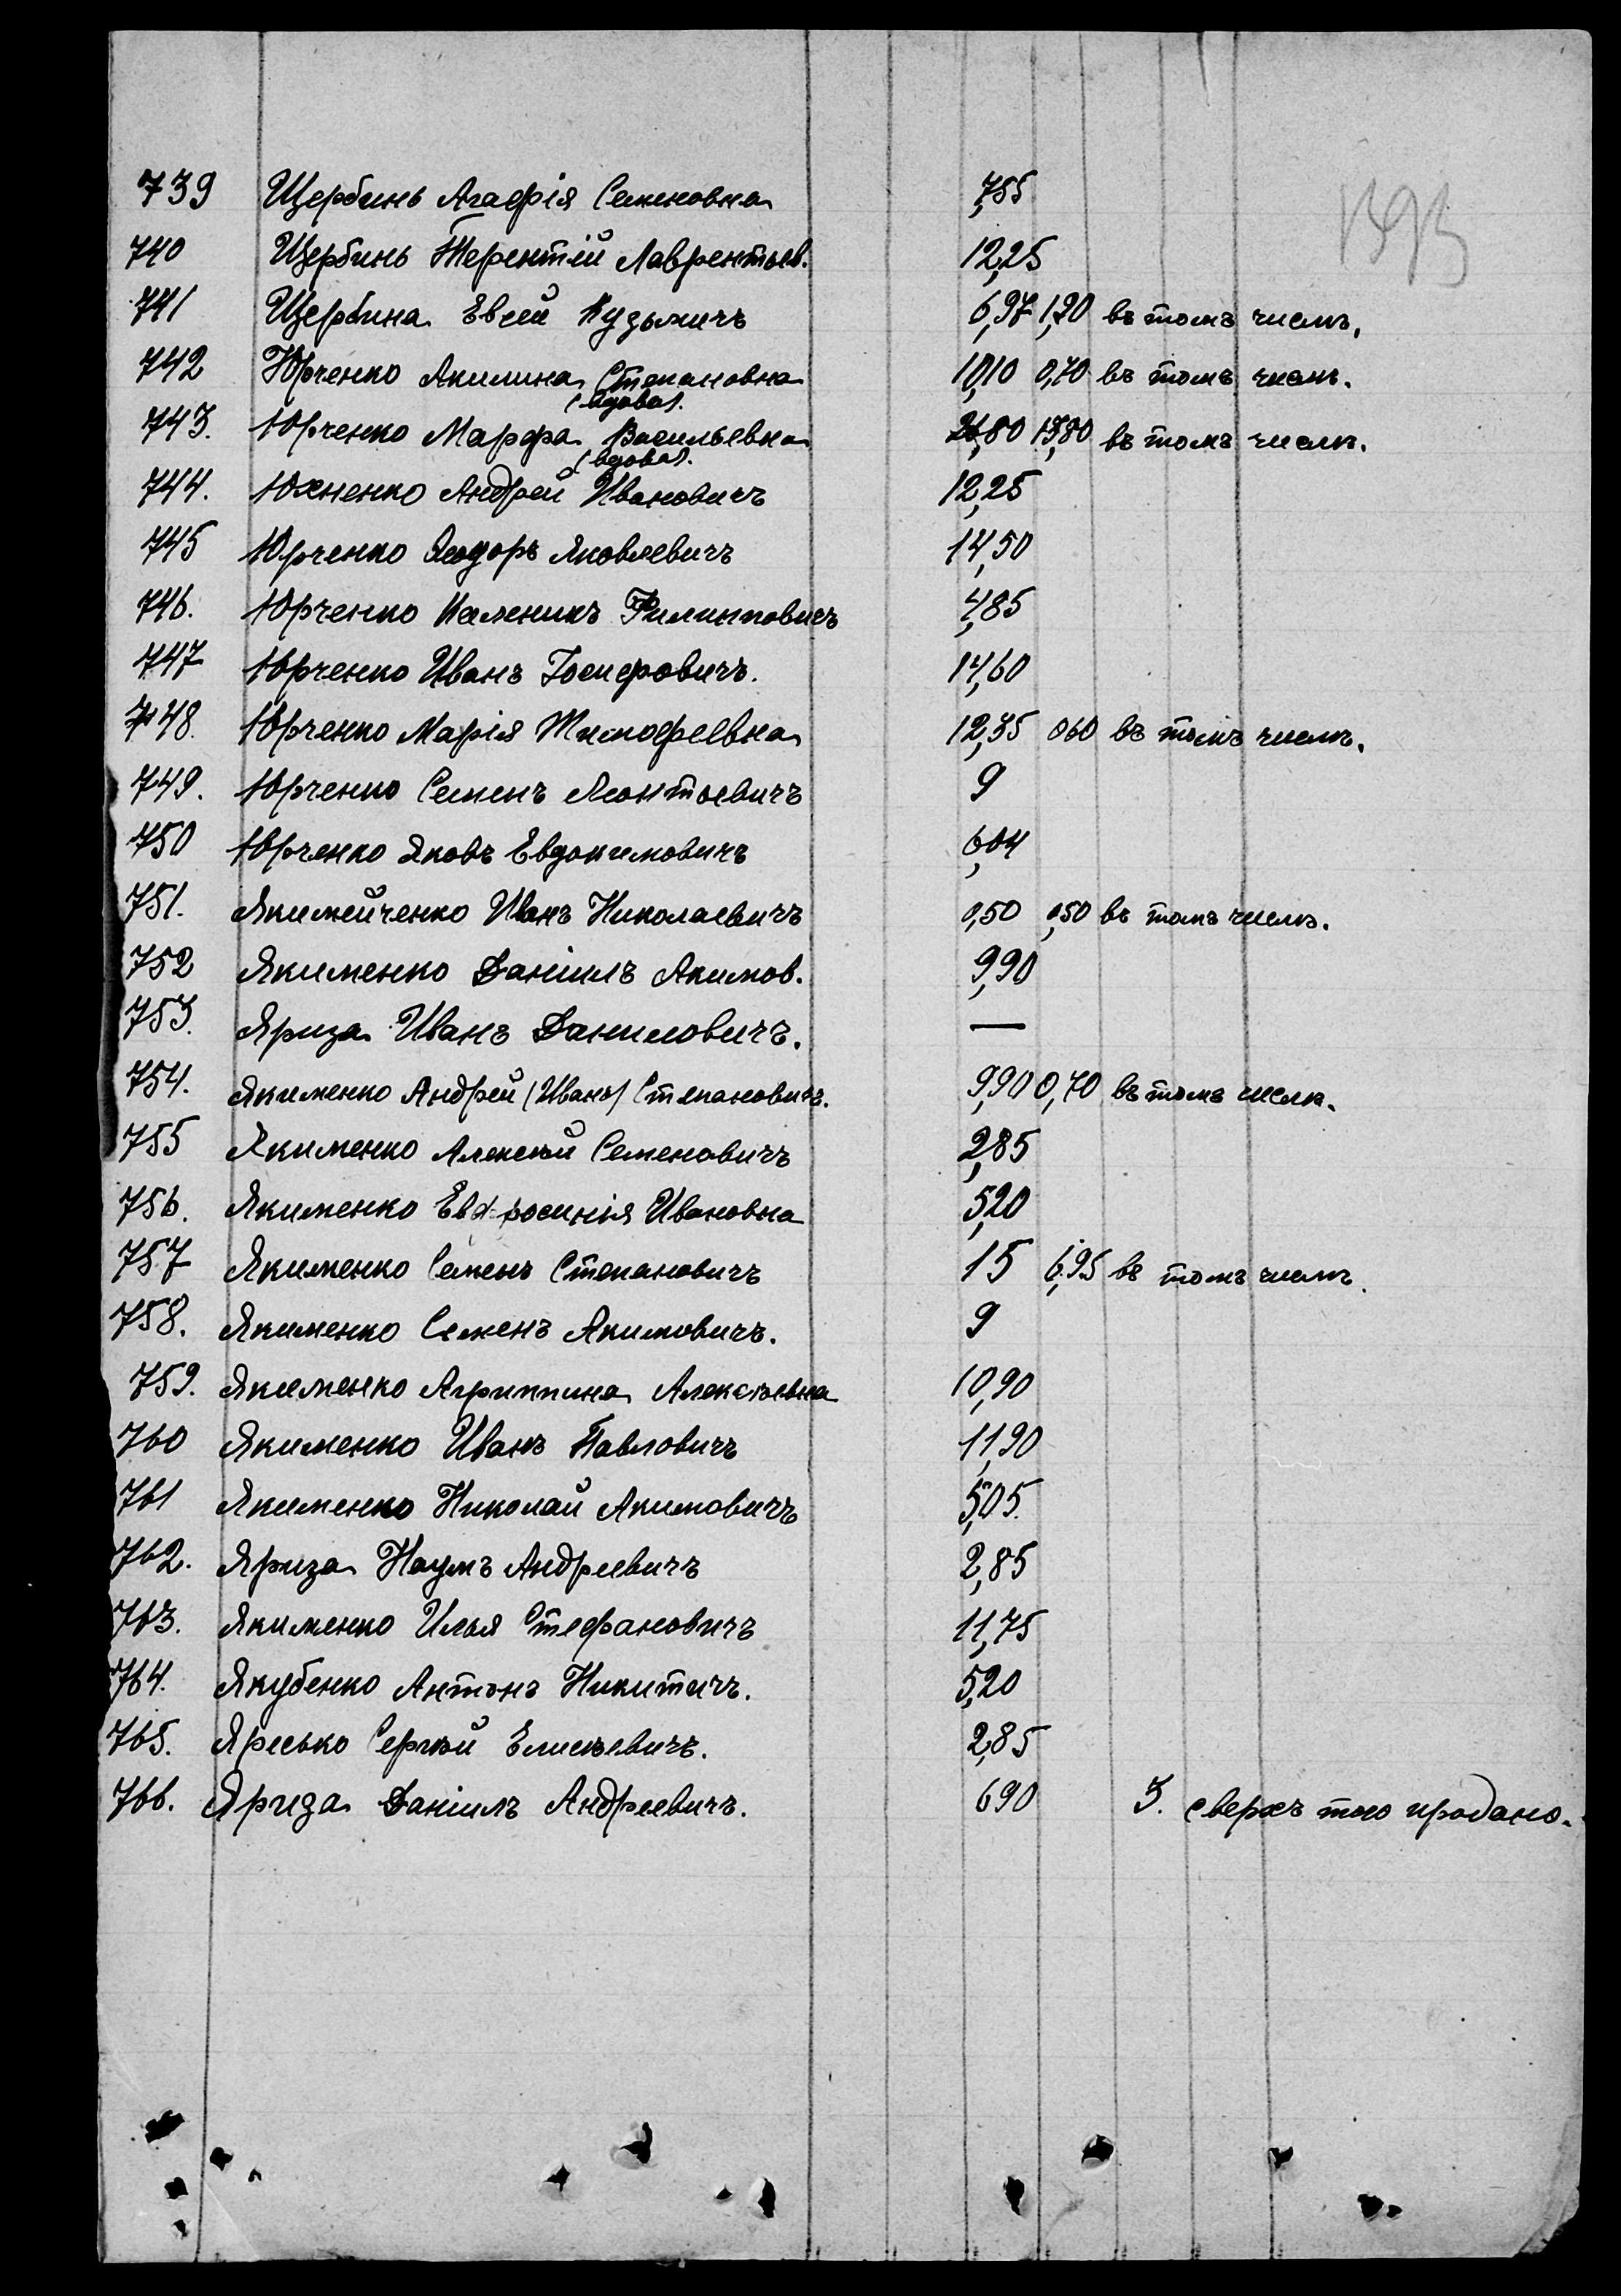 739 Щербинь Агафія Семеновна 7,55
740 Щербинь Терентій Лаврентьев. 12,25
741 Щербина Евсей Кузьмичъ 6,97 1,20 въ томъ числѣ.
742 Юрченко Акилина Степановна 10,10 0,70 въ томъ числѣ.
(вдова).
743. Юрченко Марфа Васильевна 80 въ томъ числѣ.
(вдова).
744. Юхненко Андрей Ивановичъ 12,25
745 Юрченко Ѳеодоръ Яковлевичъ 14,50
746. Юрченко Каленикъ Филипповичъ 4,85
747 Юрченко Иванъ Іосифовичъ. 14,60
748. Юрченко Марія Тимофеевна 12,35 060 въ томъ числѣ.
749. Юрченко Семенъ Леонтьевичъ 9
750 Юрченко Яковъ Евдокимовичъ 6,04
751. Якимейченко Иванъ Николаевичъ 0,50 0,50 въ томъ числѣ.
752 Якименко Даніилъ Акимов. 9,90
753. Яриза Иванъ Даниловичъ. —
754. Якименко Андрей (Иванъ) Степановичъ. 9,90 0,70 въ томъ числѣ.
755 Якименко Алексѣй Семеновичъ 2,85
756. Якименко Евфросинія Ивановна 5,20
757 Якименко Семенъ Степановичъ 15 6,95 въ томъ числѣ.
758. Якименко Семенъ Акимовичъ. 9
759. Якименко Агриппина Алексѣевна 10,90
760 Якименко Иванъ Павловичъ 11,90
761 Якименко Николай Акимовичъ 5,05.
762. Яриза Наумъ Андреевичъ 2,85
763. Якименко Илья Стефановичъ 11,75
764. Якубенко Антонъ Никитичъ. 5,20
765. Яресько Сергѣй Елисѣевичъ. 2,85
766. Яриза Даніилъ Андреевичъ. 690 3. сверхъ того продано.